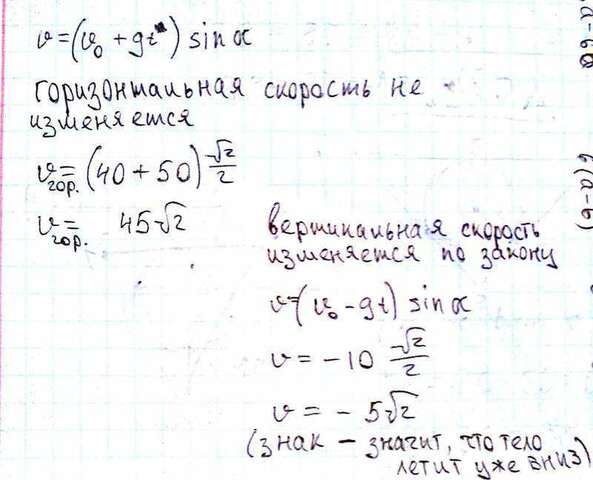 v=(v₀ + gt) sin α
горизонтальная скорость не
изменяется
v гор. = (40 + 50) √2/2
v гор. = 45√2
вертикальная скорость
изменяется по закону
v=(v₀ - gt) sin α
v = - 10 √2/2
v = - 5√2
(знак - значит, что тело
летит уже вниз)